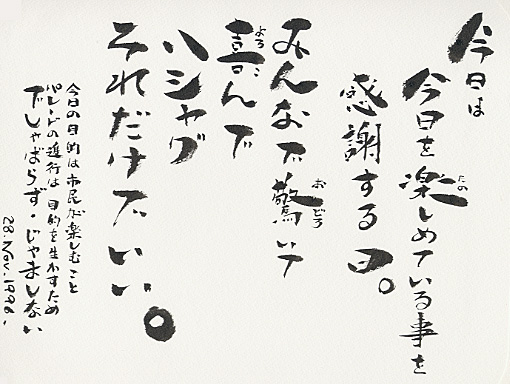 今日は
今日を楽しめている事を
感謝する日。
みんなで驚いて
喜んで
ハシャグ
それだけでいい。
今日の目的は市民が楽しむこと
パレードの進行は目的を生かすため
でしゃばらず・じゃましない
28.Nov.1998.